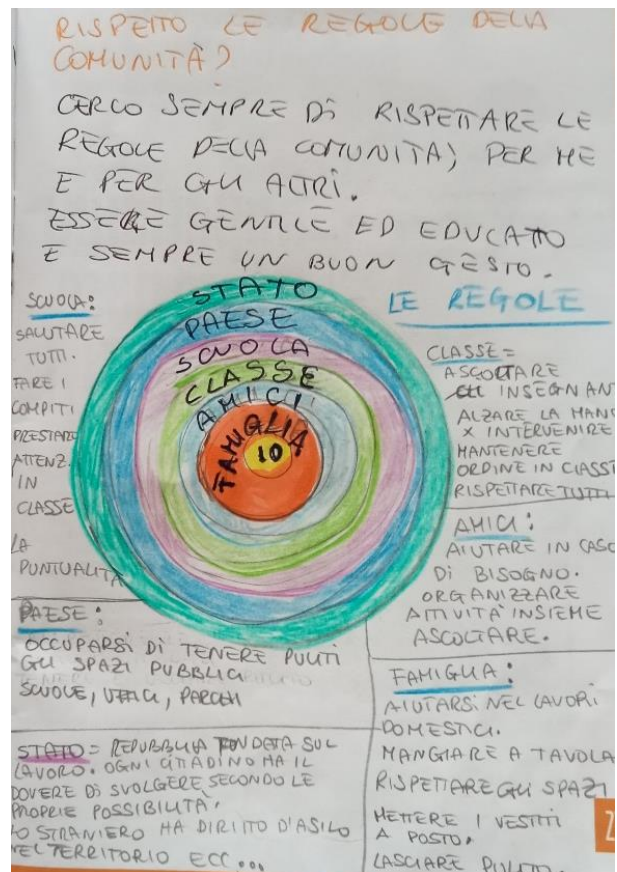 RISPETTO LE REGOLE DELLA
COMUNITÀ?
CERCO SEMPRE DI RISPETTARE LE
REGOLE DELLA COMUNITÀ, PER ME
E PER GLI ALTRI.
ESSERE GENTILE ED EDUCATO
E SEMPRE UN BUON GESTO.
STATO
PAESE
SCUOLA
CLASSE
AMICI
FAMIGLIA
IO
SCUOLA:
SALUTARE
TUTTI.
FARE I
COMPITI
PRESTARE
ATTENZ.
IN
CLASSE
LA
PUNTUALITÀ
LE REGOLE
CLASSE=
ASCOLTARE
GLI INSEGNANT
ALZARE LA MANO
X INTERVENIRE
MANTENERE
ORDINE IN CLASSE
RISPETTARE TUTTI
AMICI:
AIUTARE IN CASO
DI BISOGNO.
ORGANIZZARE
ATTIVITÀ INSIEME
ASCOLTARE.
PAESE:
OCCUPARSI DI TENERE PULITI
GLI SPAZI PUBBLICI
SCUOLE, UFFICI, PARCHI
FAMIGLIA:
AIUTARSI NEI LAVORI
DOMESTICI.
MANGIARE A TAVOLA
RISPETTARE GLI SPAZI
METTERE I VESTITI
A POSTO.
LASCIARE PULITO.
STATO= REPUBBLICA FONDATA SUL
LAVORO. OGNI CITTADINO HA IL
DOVERE DI SVOLGERE SECONDO LE
PROPRIE POSSIBILITÀ.
LO STRANIERO HA DIRITTO D'ASILO
NEL TERRITORIO ECC...
2